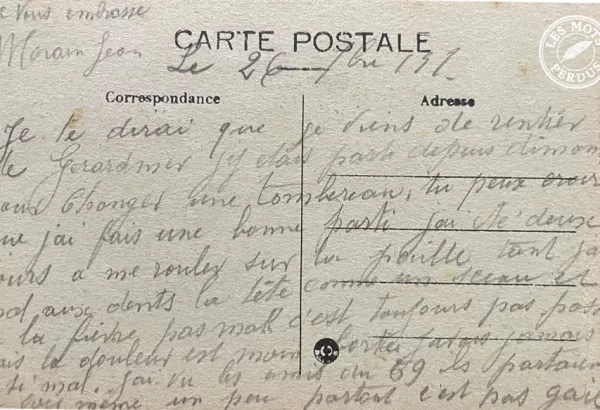 Vous embrasse
Moram Jean
CARTE POSTALE
LES MOTS PERDUS
Le 26
Correspondance
Adresse
Je te dirai que je viens de rentrer
de Gerardmer j'y etais parti depuis dimon
pour Changer une tombereau, tu peux croir
que j'ai fais une bonne parti j'ai été deux
jours a me rouler sur la paille tant j'a
aux dents la tête comme un sceau et
la fievre pas mal c'est toujours pas pas
mais la douleur est moin forte j'avais jamais
si mal. j'ai vu les amis du 69 ils partain
même un peu partout c'est pas gaie